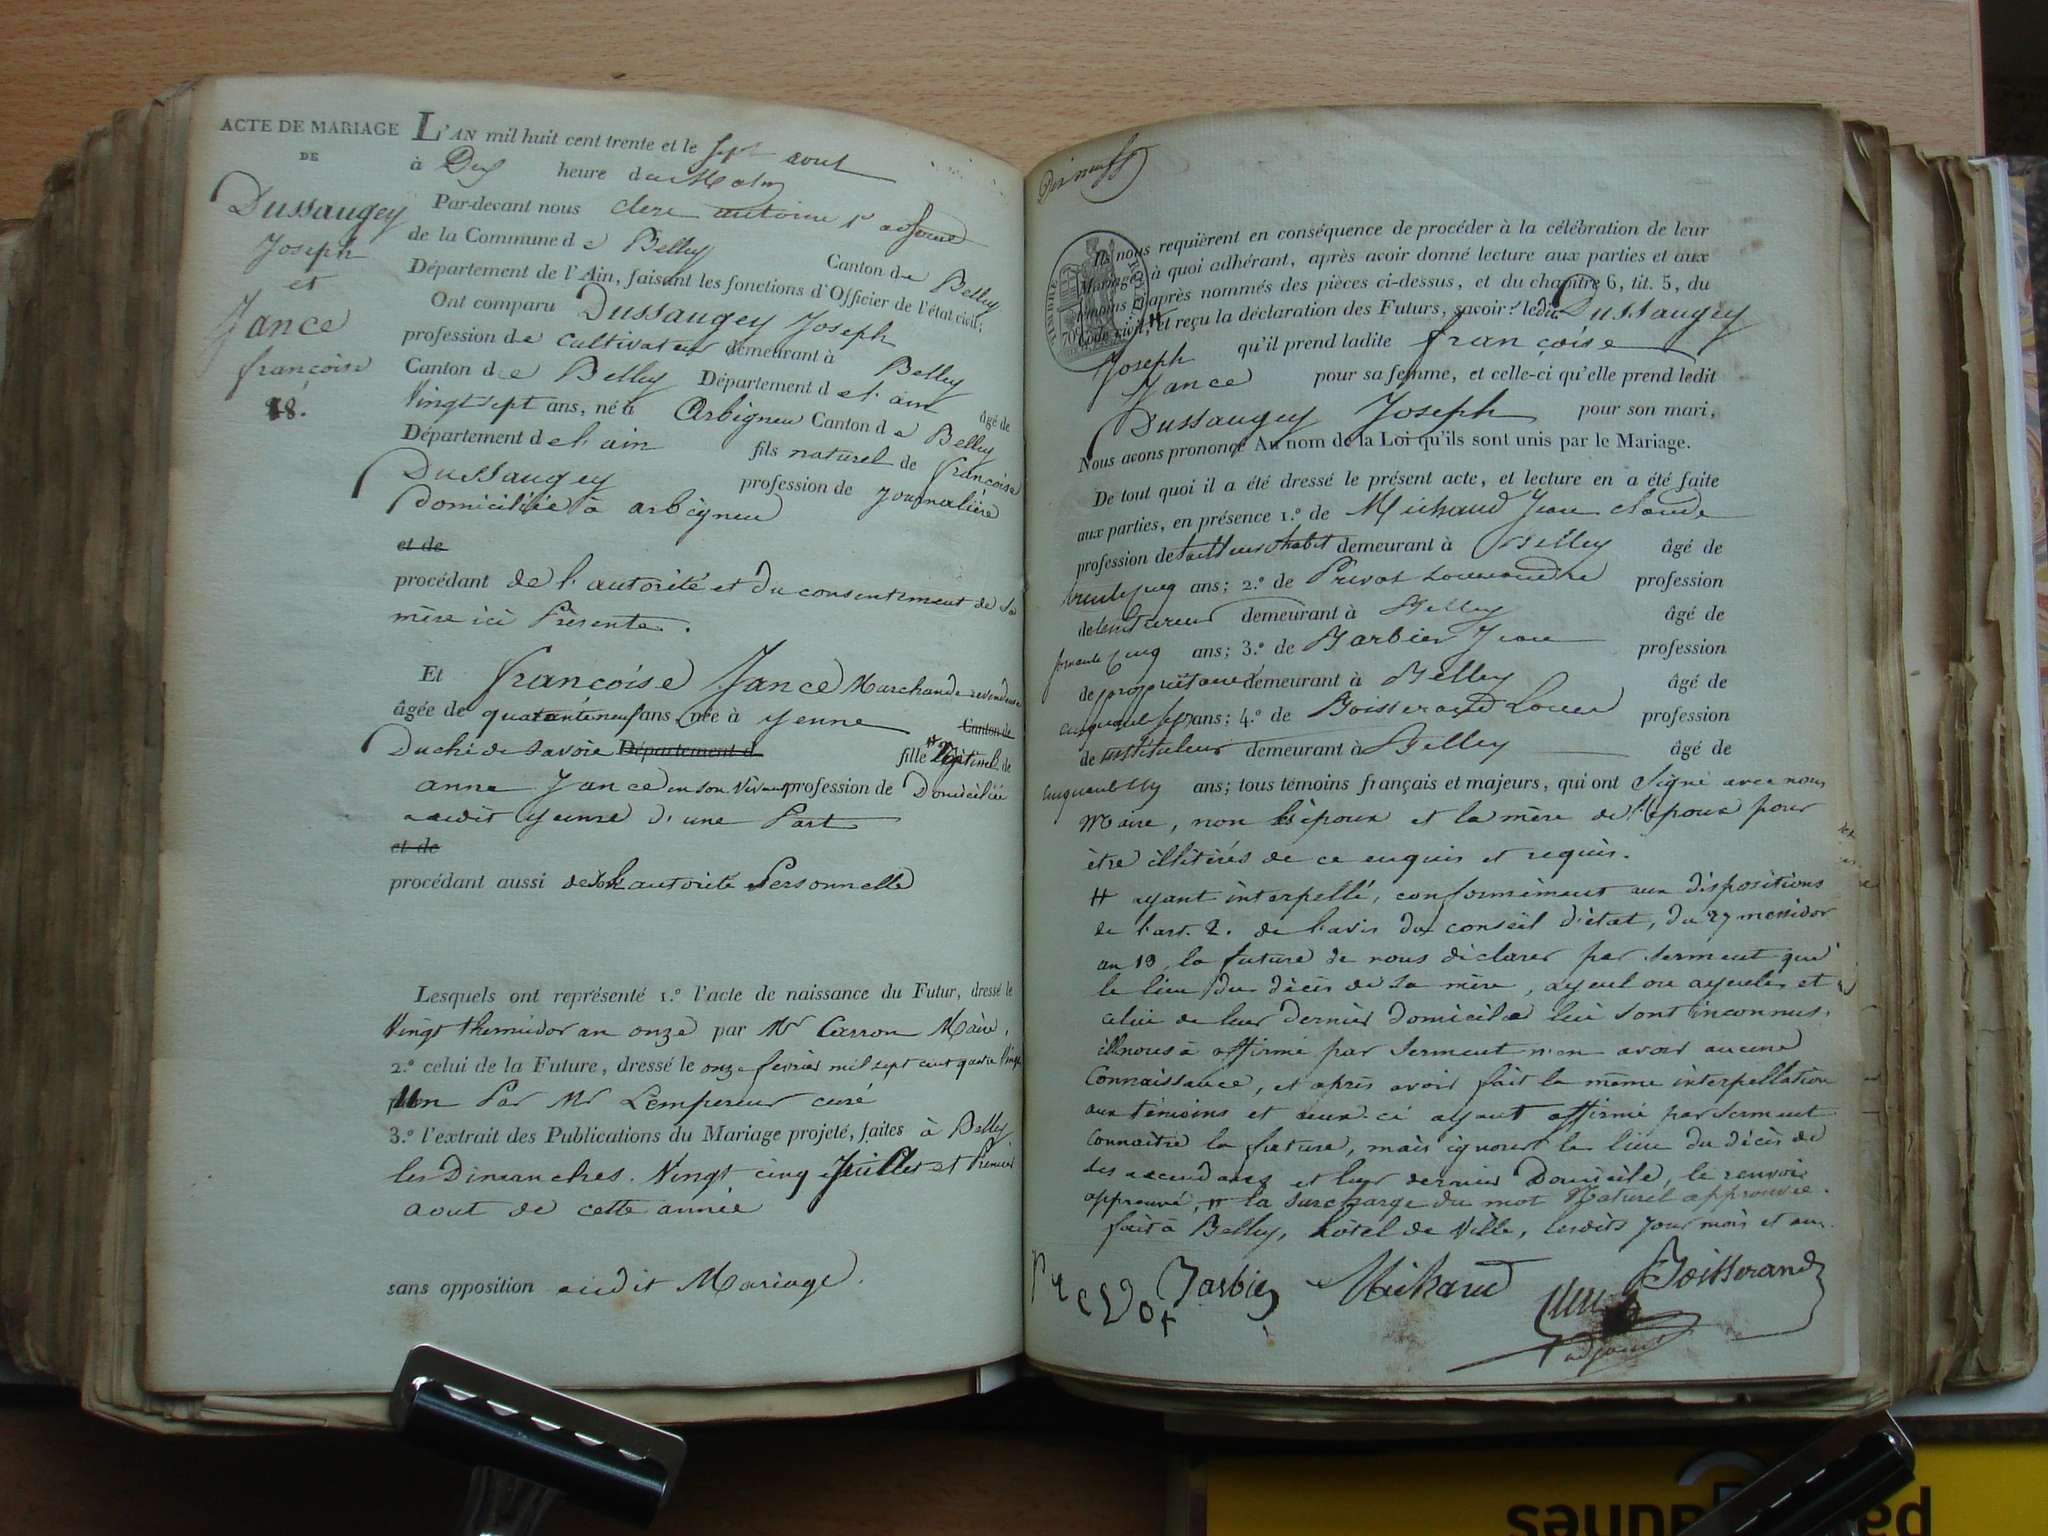 ACTE DE MARIAGE
DE
Dussaugey
Joseph
et
Jance
françoise
28.
L'AN mil huit cent trente et le sept aout
à Dix heure du Matin
Par-devant nous clerc antoine 1er adjoint
de la Commune de Belley Canton de Belley
Département de l'Ain, faisant les fonctions d'Officier de l'état civil;
Ont comparu Dussaugey Joseph
profession de cultivateur demeurant à Belley
Canton de Belley Département de l'ain âgé de
Vingt sept ans, né à Arbigneu Canton de Belley
Département de l'ain fils naturel de françoise
Dussaugey profession de journalière
Domiciliée à arbigneu
et de
procédant de l'autorité et du consentement de sa
mère ici Présente.
Et françoise Jance Marchande revendeuse
âgée de quarante neuf ans, née à yenne Canton de
Duché de Savoie Département d fille # de
anne Jance en son vivant profession de Domiciliée
audit yenne d'une Part
et de
procédant aussi de son autorité Personnelle
Lesquels ont représenté 1.º l'acte de naissance du Futur, dressé le
Vingt thermidor an onze par Mr Carron Maire,
2.º celui de la Future, dressé le onze février mil sept cent quatre vingt
un Par Mr Lempereur curé
3.º l'extrait des Publications du Mariage projeté, faites à Belley
les Dimanches Vingt cinq Juillet et Premier
aout de cette année
sans opposition audit Mariage.
Dix neuf
TIMBRE ROYAL
70
Ils nous requièrent en conséquence de procéder à la célébration de leur
Mariage, à quoi adhérant, après avoir donné lecture aux parties et aux
témoins ci-après nommés des pièces ci-dessus, et du chapitre 6, tit. 5, du
Code civil, # et reçu la déclaration des Futurs, savoir: ledit Dussaugey
Joseph qu'il prend ladite françoise
Jance pour sa femme, et celle-ci qu'elle prend ledit
Dussaugey Joseph pour son mari,
Nous avons prononcé Au nom de la Loi qu'ils sont unis par le Mariage.
De tout quoi il a été dressé le présent acte, et lecture en a été faite
aux parties, en présence 1.º de Michaud Jean claude
profession de tailleur d'habit demeurant à Belley âgé de
trente cinq ans; 2.º de Privat profession
de teinturier demeurant à Belley âgé de
cinq ans; 3.º de Barbier Jean profession
de propriétaire demeurant à Belley âgé de
cinquante sept ans; 4.º de Boisserand Louis profession
de instituteur demeurant à Belley âgé de
cinquante ans; tous témoins français et majeurs, qui ont signé avec nous
Maire, non les époux et la mère de l'époux pour
être illitérés de ce enquis et requis.
# ayant interpellé, conformément aux dispositions
de l'art. 2. de l'avis du conseil d'état, du 27 messidor
an 13, la future de nous déclarer par serment que
le lieu du décès de sa mère, ayeul ou ayeules et
celui de leur dernier domicile lui sont inconnus,
elle nous à affirmé par serment n'en avoir aucune
Connaissance, et après avoir fait la même interpellation
aux témoins et ceux-ci ayant affirmé par serment
connaitre la future, mais ignorer le lieu du décès de
ses ascendans et leur dernier Domicile, le renvoi
approuvé, # la surcharge du mot Naturel approuvée.
fait à Belley, hôtel de Ville, lesdits jour mois et an.
Barbier Michaud Boisserand
adjoint